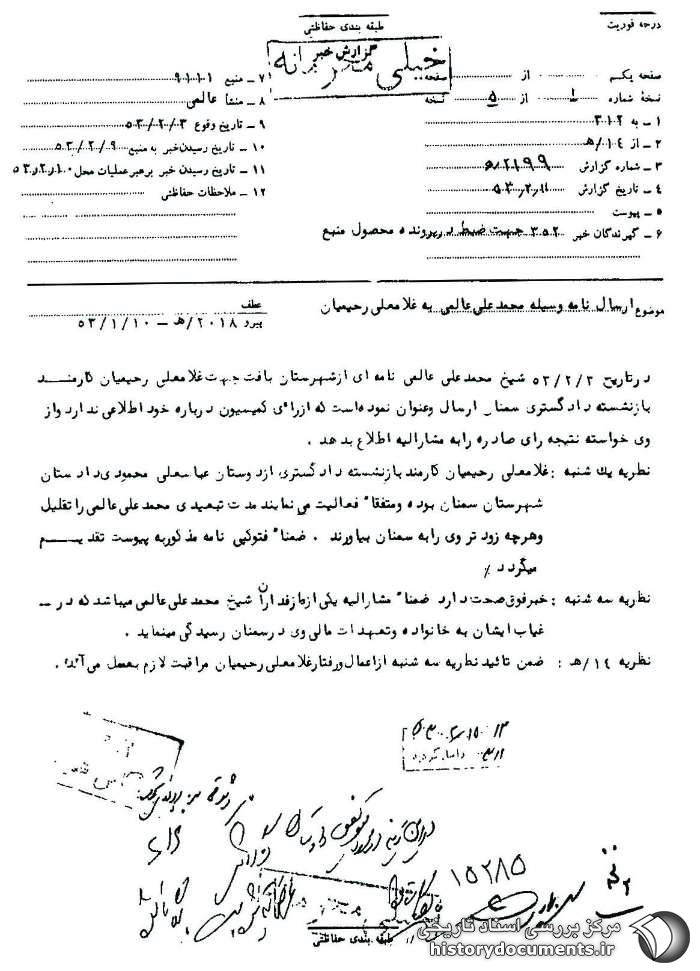 درجه فوریت
طبقه بندی حفاظتی
گزارش خبر
خیلی محرمانه
صفحه یکم از صفحه
نسخهٔ شماره ۱ از ۵ نسخه
۱ ـ به ۳۱۲
۲ ـ از ۱۴/ه‍
۳ ـ شماره گزارش ۲۱۹۹/ه‍
۴ ـ تاریخ گزارش ۵۳٫۲٫۱۱
۵ ـ پیوست
۶ ـ گیرندگان خبر ۳۵۲ جهت ضبط در پرونده محصول منبع
۷ ـ منبع ۹۱۱۱
۸ ـ منشأ عالمی
۹ ـ تاریخ وقوع ۵۳/۲/۳
۱۰ ـ تاریخ رسیدن خبر به منبع ۵۳/۲/۹
۱۱ ـ تاریخ رسیدن خبر برهبر عملیات محل ۵۳٫۲٫۱۰
۱۲ ـ ملاحظات حفاظتی
موضوع ارسال نامه وسیله محمدعلی عالمی به غلامعلی رحیمیان
عطف
پیرو ۲۰۱۸/ه‍ ـ ۵۳/۱/۱۰
درتاریخ ۵۳/۲/۳ شیخ محمدعلی عالمی نامه ای ازشهرستان بافت جهت غلامعلی رحیمیان کارمنـــد
بازنشسته دادگستری سمنان ارسال وعنوان نموده است که ازرای کمیسیون درباره خود اطلاعی ندارد واز
وی خواسته نتیجه رای صادره رابه مشارالیه اطلاع بدهد .
نظریه یك شنبه : غلامعلی رحیمیان کارمند بازنشسته دادگستری ازدوستان عباسعلی محمودی دادستان
شهرستان سمنان بوده ومتفقاً فعالیت می نمایند مدت تبعیدی محمدعلی عالمی را تقلیل
وهرچه زود تر وی رابه سمنان بیاورند . ضمناً فتوکپی نامه مذکوربه پیوست تقدیــــم
میگردد ٪
نظریه سه شنبه : خبرفوق صحت دارد ضمناً مشارالیه یکی ازطرفداران شیخ محمدعلی عالمی میباشد که در ــ
غیاب ایشان به خانواده وتعهدات مالی وی درسمنان رسیدگی مینماید .
نظریه ۱۴/ه‍ : ضمن تائید نظریه سه شنبه ازاعمال ورفتار غلامعلی رحیمیان مراقبت لازم بعمل می آید .
۱۵۲۸۵
طبقه بندی حفاظتی
مرکز بررسی اسناد تاریخی
historydocuments.ir